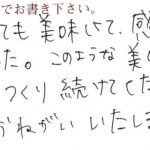 でお書き下さい。
ても美味しくて、感
た。このような美
つくり続けてくだ
おねがいいたしま